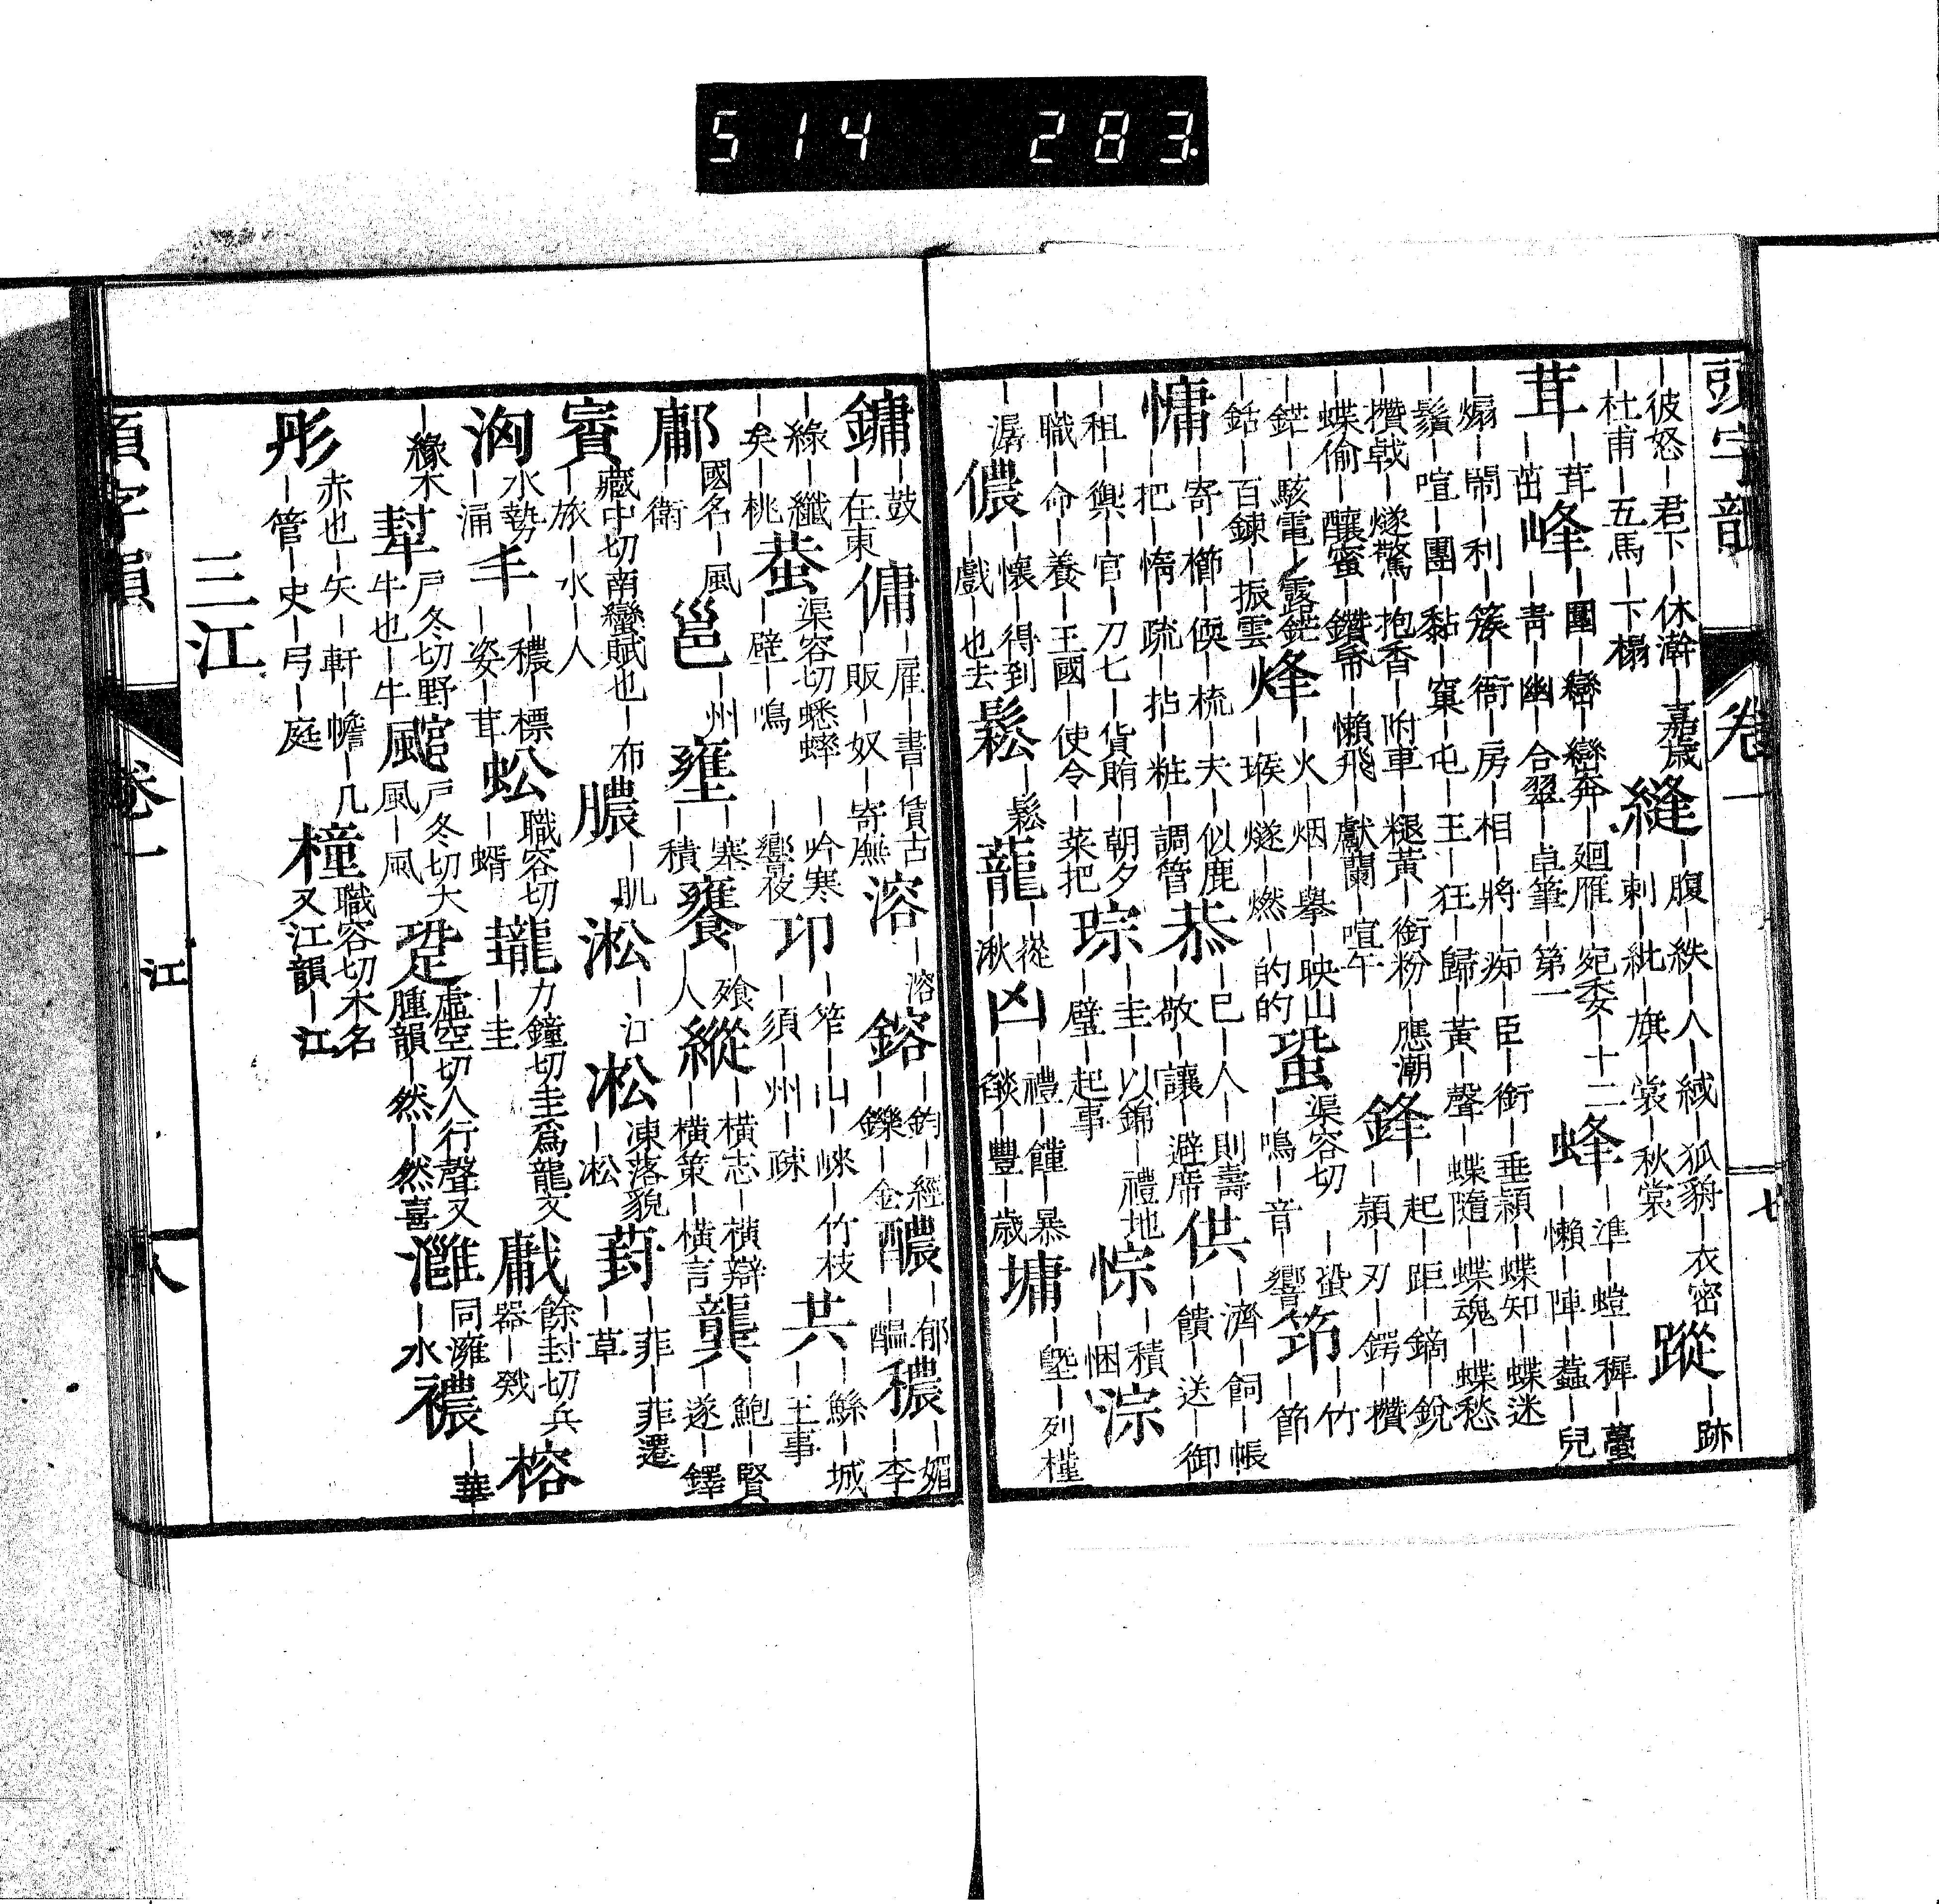 514 283
頭字韻 卷一 七
｜彼怒｜君下｜休澣｜嘉歲
｜杜甫｜五馬｜下榻
縫｜腹｜紩｜人｜緎｜狐貈｜衣密
｜刺｜紕｜旗｜裳｜秋裳
蹤｜跡
茸｜茸
｜茁
峰｜團｜巒｜巒奔｜廻雁｜宛委｜十二
｜靑｜幽｜合翠｜卓筆｜第一
蜂｜準｜螳｜稺｜蠆
｜懶｜陣｜蠚｜兒
｜煽｜鬧｜利｜簇｜衙｜房｜相｜將｜痴｜臣｜銜｜垂頴｜蝶知｜蝶迷
｜鬚｜喧｜團｜黏｜窠｜屯｜王｜狂｜歸｜黃｜聲｜蝶隨｜蝶魂｜蝶愁
｜攢戟｜燧驚｜抱香｜附車｜糭黃｜銜粉｜應潮
｜蝶偷｜釀蜜｜鑽帋｜懶飛｜獻蘭｜喧午
鋒｜起｜距｜鏑｜銳
｜頴｜刃｜鍔｜攢
｜鋩｜駭電｜露鋩
｜銛｜百鍊｜振雲
烽｜火｜烟｜擧｜映山
｜堠｜燧｜燃｜的的
蛩渠容切｜蛩
｜鳴｜音｜響
筇｜竹
｜節
慵｜寄｜櫛｜偄｜梳｜夫｜似鹿
｜把｜惰｜疏｜拈｜粧｜調管
恭｜巳｜人｜則壽
｜敬｜讓｜避席
供｜濟｜飼｜帳
｜饋｜送｜御
｜租｜輿｜官｜刀匕｜貨賄｜朝夕
｜職｜命｜養｜王國｜使令｜菜把
琮｜圭｜以錦｜禮地
｜璧｜起事
悰｜積
｜悃
淙
｜潺
儂｜懷｜得到
｜戲｜也去
鬆｜鬆
蘢｜從
｜湫
凶｜禮｜饉｜暴
｜燄｜豐｜歲
墉｜塈｜列槿
鏞｜鼓
｜在東
傭｜雇｜書｜賃古
｜販｜奴｜寄廡
溶｜溶
鎔｜鈞｜經
｜鑠｜金
醲｜郁
｜醞
穠｜媚
｜李
｜綠｜纖
｜矣｜桃
蛬渠容切蟋蟀｜吟寒
｜壁｜鳴｜響夜
邛｜笮｜山｜崍｜竹枝
｜須｜州｜疎
共｜鯀｜城
｜王事
鄘國名｜風
｜衛
邕｜州
壅｜塞
｜積
饔｜飧
｜人
縱｜橫｜橫志｜橫辯
｜橫策｜橫言
龔｜鮑｜賢
｜遂｜鐸
賨藏中切南蠻賦也｜布
｜旅｜水｜人
膿｜肌
淞｜江
凇凍落貌
｜凇
葑｜菲｜菲遷
｜草
洶水勢
｜涌
丰｜穠｜標
｜姿｜茸
蚣職容切
｜蝑
㰍力鐘切圭爲龍文
｜圭
㦷餘封切兵
器｜戣
榕
｜緣木
犎戶冬切野
牛也｜牛
䫹戶冬切大
風｜風
跫虛空切人行聲又
腫韻｜然｜然喜
灉同澭
｜水
襛｜華
彤赤也｜矢｜軒｜幨｜几
｜管｜史｜弓｜庭
橦職容切木名
又江韻｜江
三江
頭字韻 卷一 江 八